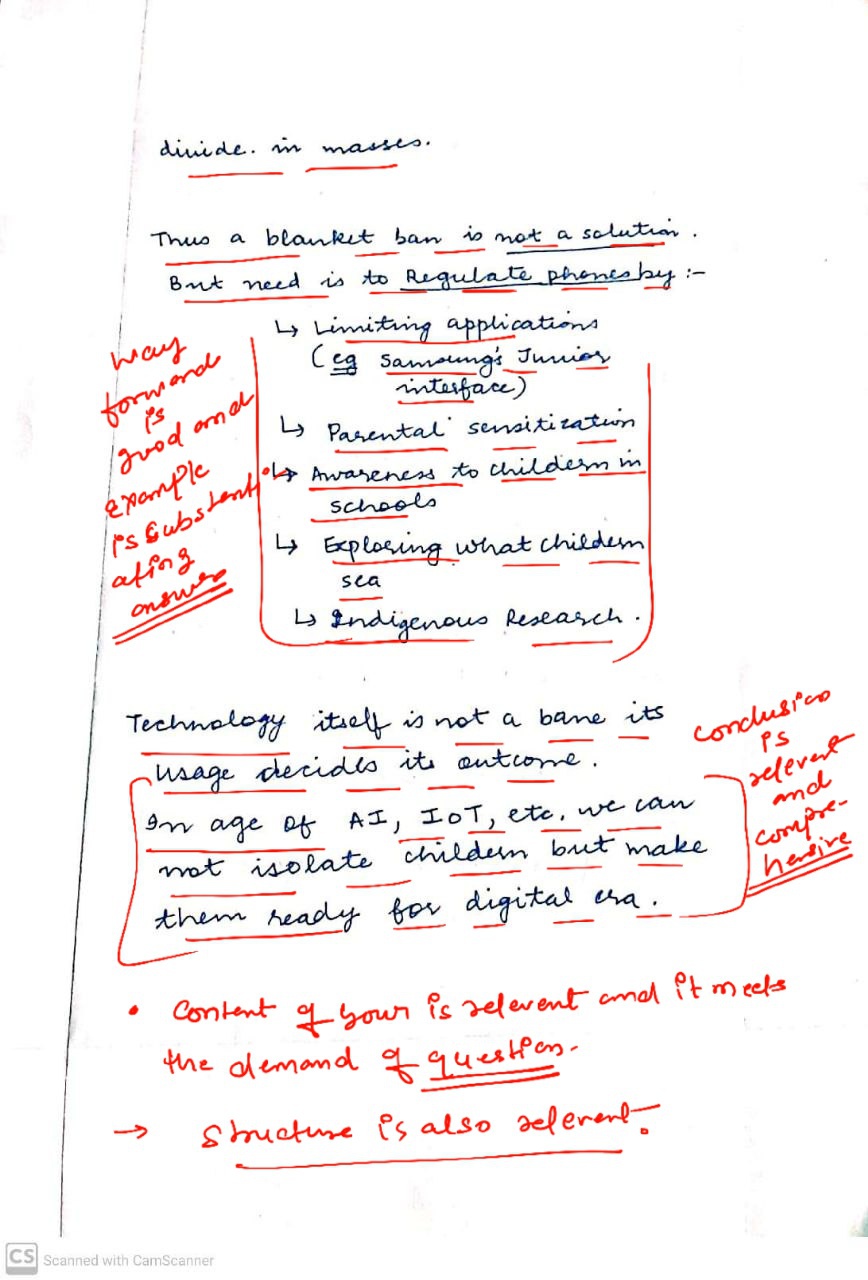 divide. in masses.
Thus a blanket ban is not a solution.
But need is to Regulate phones by :-
↳ Limiting applications
(eg Samsung's Junior
interface)
↳ Parental sensitization
↳ Awareness to childern in
schools
↳ Exploring what childern
sea
↳ Indigenous Research.
way
forward
is
good and
example
is substanti
ating
answer
Technology itself is not a bane its
usage decides its outcome.
In age of AI, IoT, etc. we can
not isolate childern but make
them ready for digital era.
conclusion
is
relevent
and
compre-
hensive
• Content of your is relevent and it meets
the demand of question.
→ Structure is also relevent.
CS Scanned with CamScanner